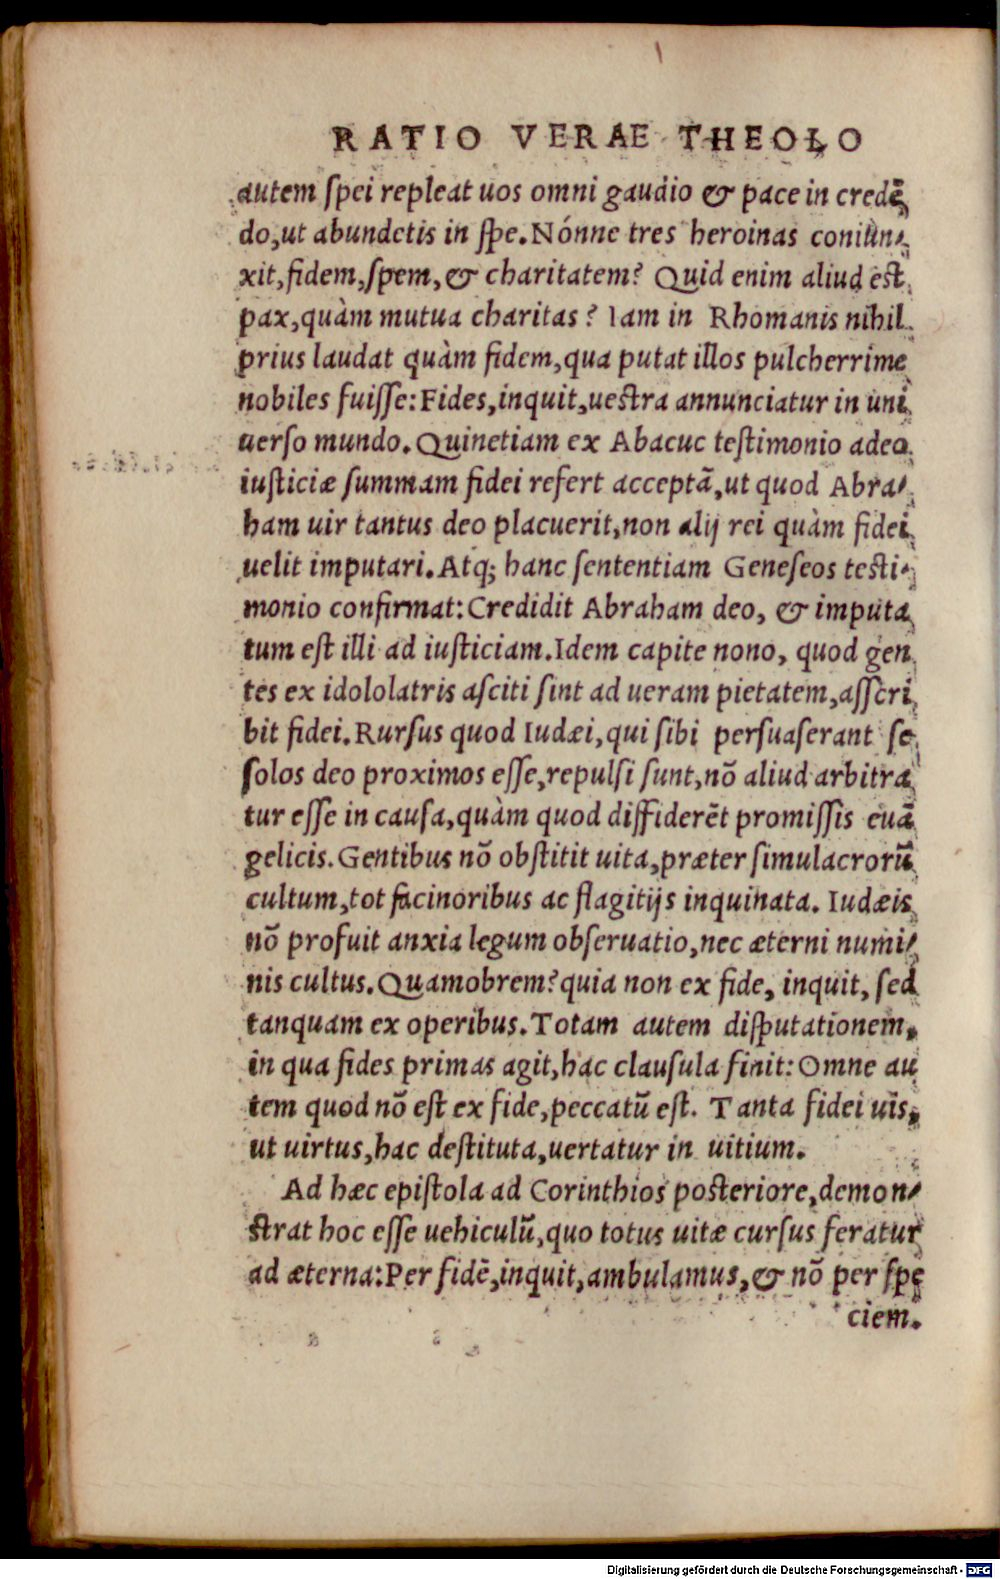 RATIO VERAE THEOLO
autem ſpei repleat uos omni gaudio & pace in credē
do,ut abundetis in ſpe.Nónne tres heroinas coniun-
xit,fidem,ſpem,& charitatem? Quid enim aliud eſt
pax,quàm mutua charitas? Iam in Rhomanis nihil
prius laudat quàm fidem,qua putat illos pulcherrime
nobiles fuiſſe:Fides,inquit,ueſtra annunciatur in uni
uerſo mundo.Quinetiam ex Abacuc teſtimonio adeo
iuſticiæ ſummam fidei refert acceptā,ut quod Abra-
ham uir tantus deo placuerit,non alij rei quàm fidei
uelit imputari.Atq; hanc ſententiam Geneſeos teſti-
monio confirmat:Credidit Abraham deo, & imputa
tum eſt illi ad iuſticiam.Idem capite nono, quod gen
tes ex idololatris aſciti ſint ad ueram pietatem,aſſcri
bit fidei.Rurſus quod Iudæi,qui ſibi perſuaſerant ſe
ſolos deo proximos eſſe,repulſi ſunt,nō aliud arbitra
tur eſſe in cauſa,quàm quod diffiderēt promiſſis euā
gelicis.Gentibus nō obſtitit uita,præter ſimulacrorū
cultum,tot facinoribus ac flagitijs inquinata. Iudæis
nō profuit anxia legum obſeruatio,nec æterni numi-
nis cultus.Quamobrem?quia non ex fide, inquit, ſed
tanquam ex operibus.Totam autem diſputationem,
in qua fides primas agit,hac clauſula finit:Omne au
tem quod nō eſt ex fide,peccatū eſt. Tanta fidei uis,
ut uirtus,hac deſtituta,uertatur in uitium.
Ad hæc epiſtola ad Corinthios poſteriore,demon-
ſtrat hoc eſſe uehiculū,quo totus uitæ curſus feratur
ad æterna:Per fidē,inquit,ambulamus,& nō per ſpe
ciem.
Digitalisierung gefördert durch die Deutsche Forschungsgemeinschaft - DFG